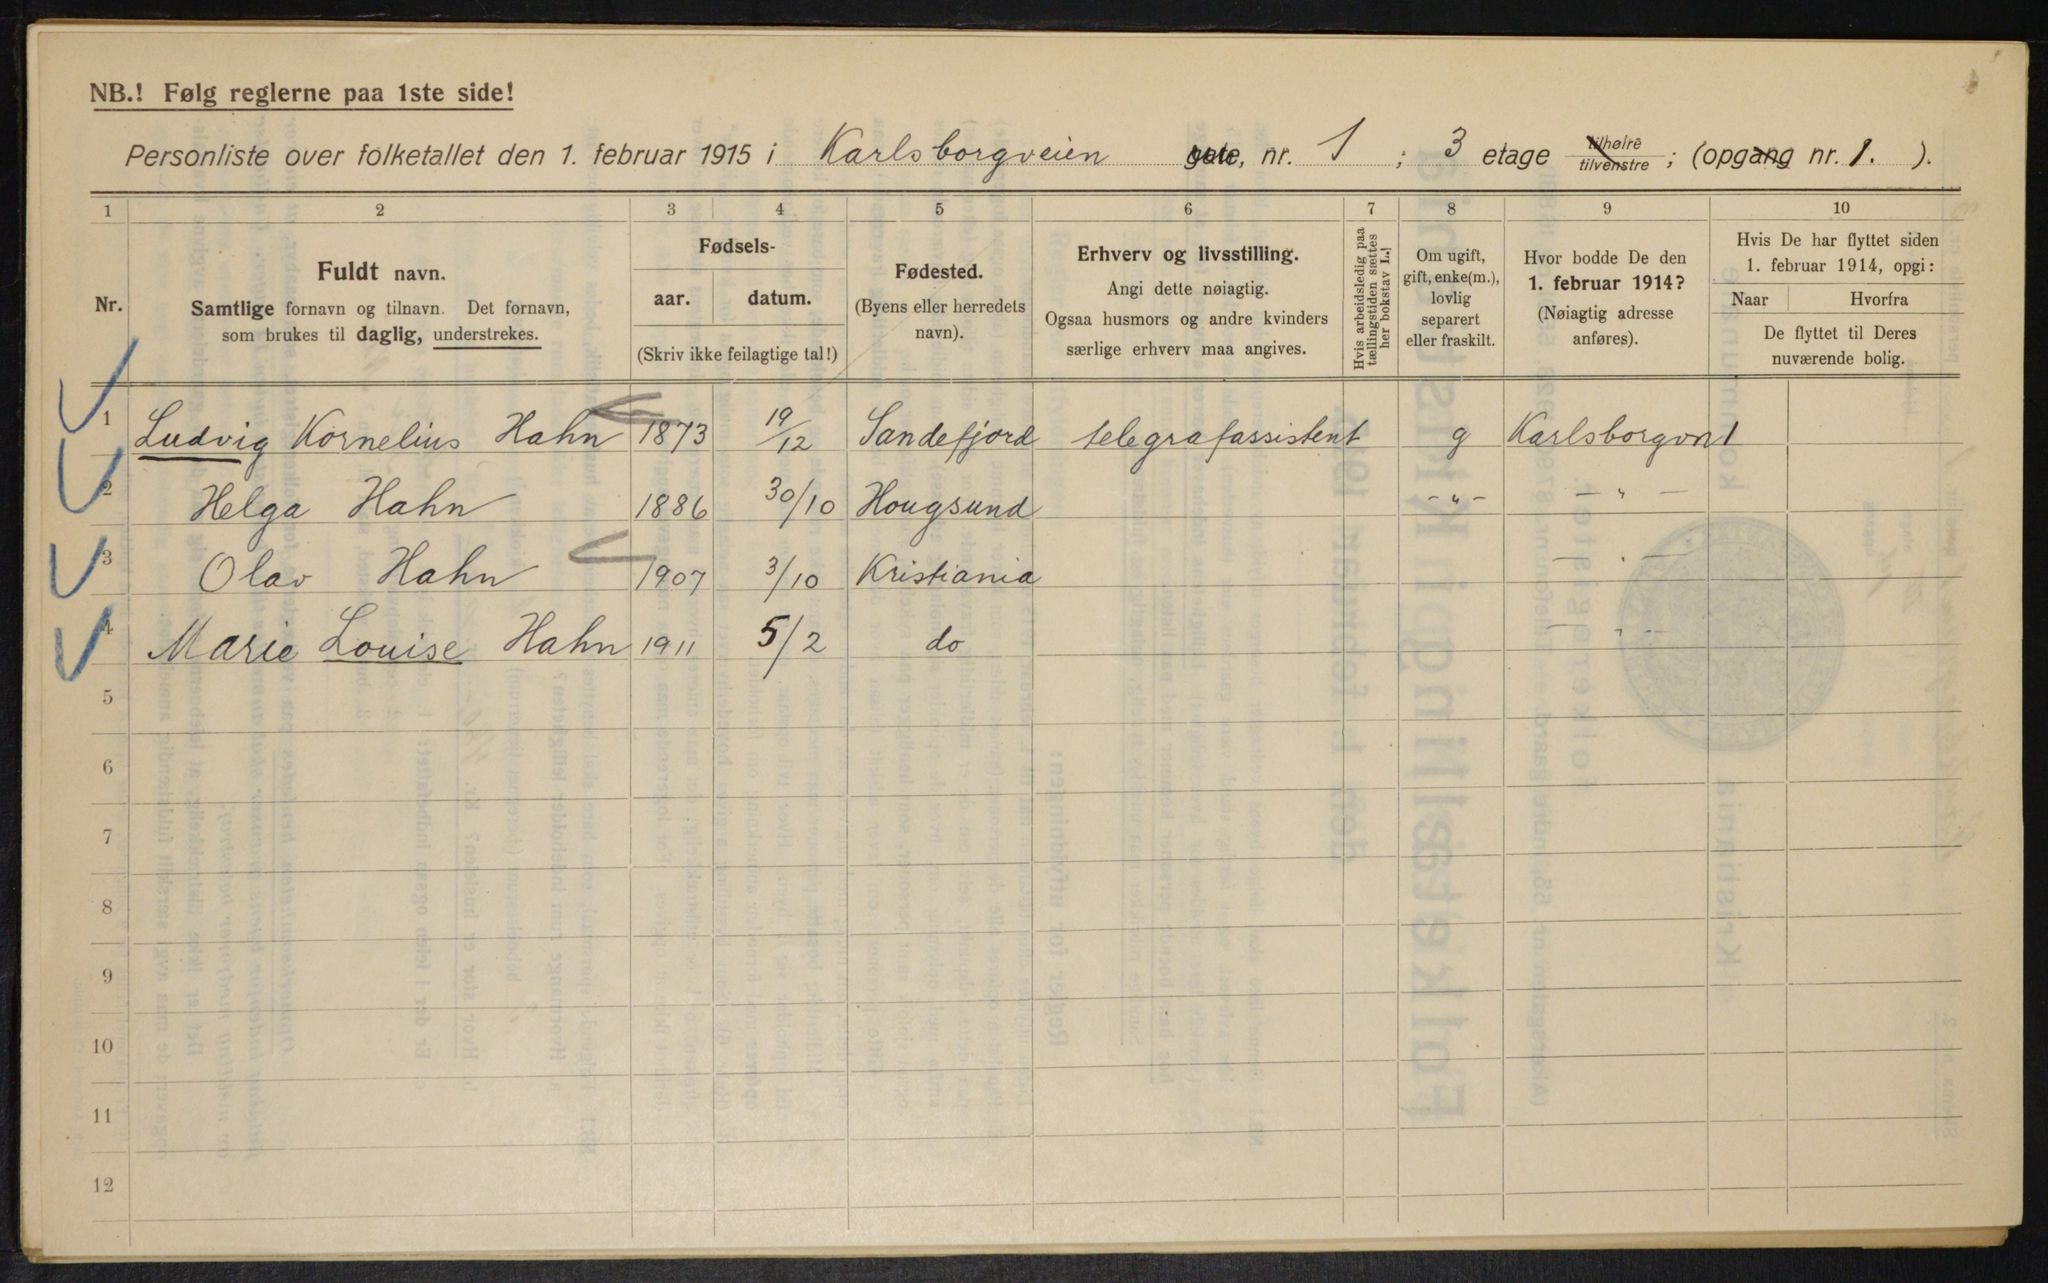 NB.! Følg reglerne paa 1ste side!
Personliste over folketallet den 1. februar 1915 i Karlsborgveien gate, nr. 1 ; 3 etage tilhøire tilvenstre ; (opgang nr. 1. ).
1 2 3 4 5 6 7 8 9 10
Nr.
Fuldt navn.
Samtlige fornavn og tilnavn. Det fornavn,
som brukes til daglig, understrekes.
Fødsels-
aar. datum.
(Skriv ikke feilagtige tal!)
Fødested.
(Byens eller herredets
navn).
Erhverv og livsstilling.
Angi dette nøiagtig.
Ogsaa husmors og andre kvinders
særlige erhverv maa angives.
Hvis arbeidsledig paa
tællingstiden sættes
her bokstav L.!
Om ugift,
gift, enke(m.),
lovlig
separert
eller fraskilt.
Hvor bodde De den
1. februar 1914?
(Nøiagtig adresse
anføres).
Hvis De har flyttet siden
1. februar 1914, opgi:
Naar Hvorfra
De flyttet til Deres
nuværende bolig.
1 Ludvig Kornelius Hahn 1873 19/12 Sandefjord telegrafassistent g Karlsborgvn 1
2 Helga Hahn 1886 30/10 Hougsund -„- -„-
3 Olav Hahn 1907 3/10 Kristiania -„-
4 Marie Louise Hahn 1911 5/2 do -„-
5
6
7
8
9
10
11
12